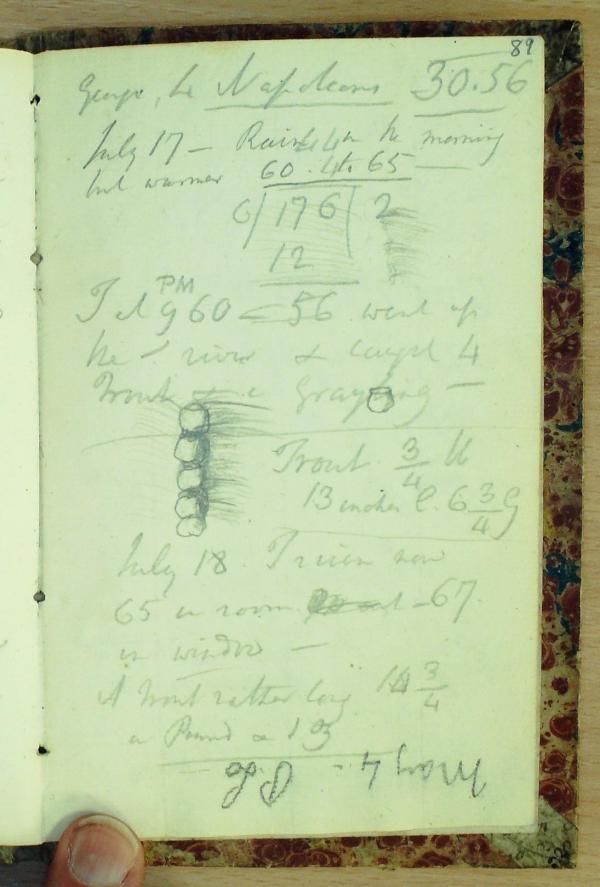 89
George, 4 Napoleons 30.56
July 17 – Rain in the morning
but warmer 60. to 65 –
6/176/2
12
PM
T at 9 60 = 56 went up
the river & caught 4
Trout & a Grayling –
Trout 3/4 lb
13 inches l. 6 3/4 G
July 18 T river now
65 in room 67.
in window –
A trout rather long 14 3/4
a Pound &
May 4 –